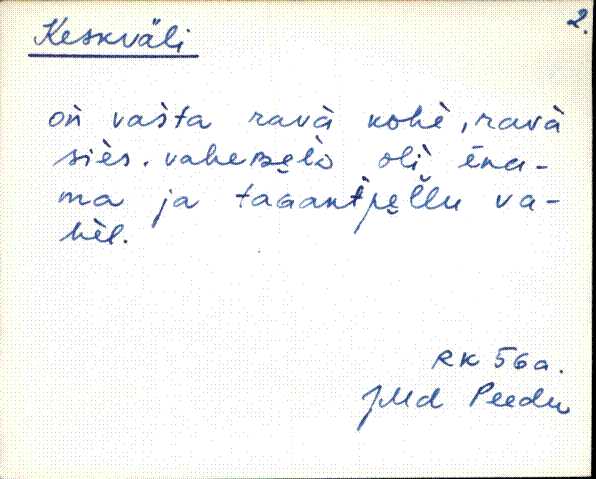 2.
Keskväli
oǹ vašta ravà kohè, ravà
siès. vaheʙèlò olì ēna-
ma ja taGant pèllu va-
hèl.
RK 56a.
JMd Peedu